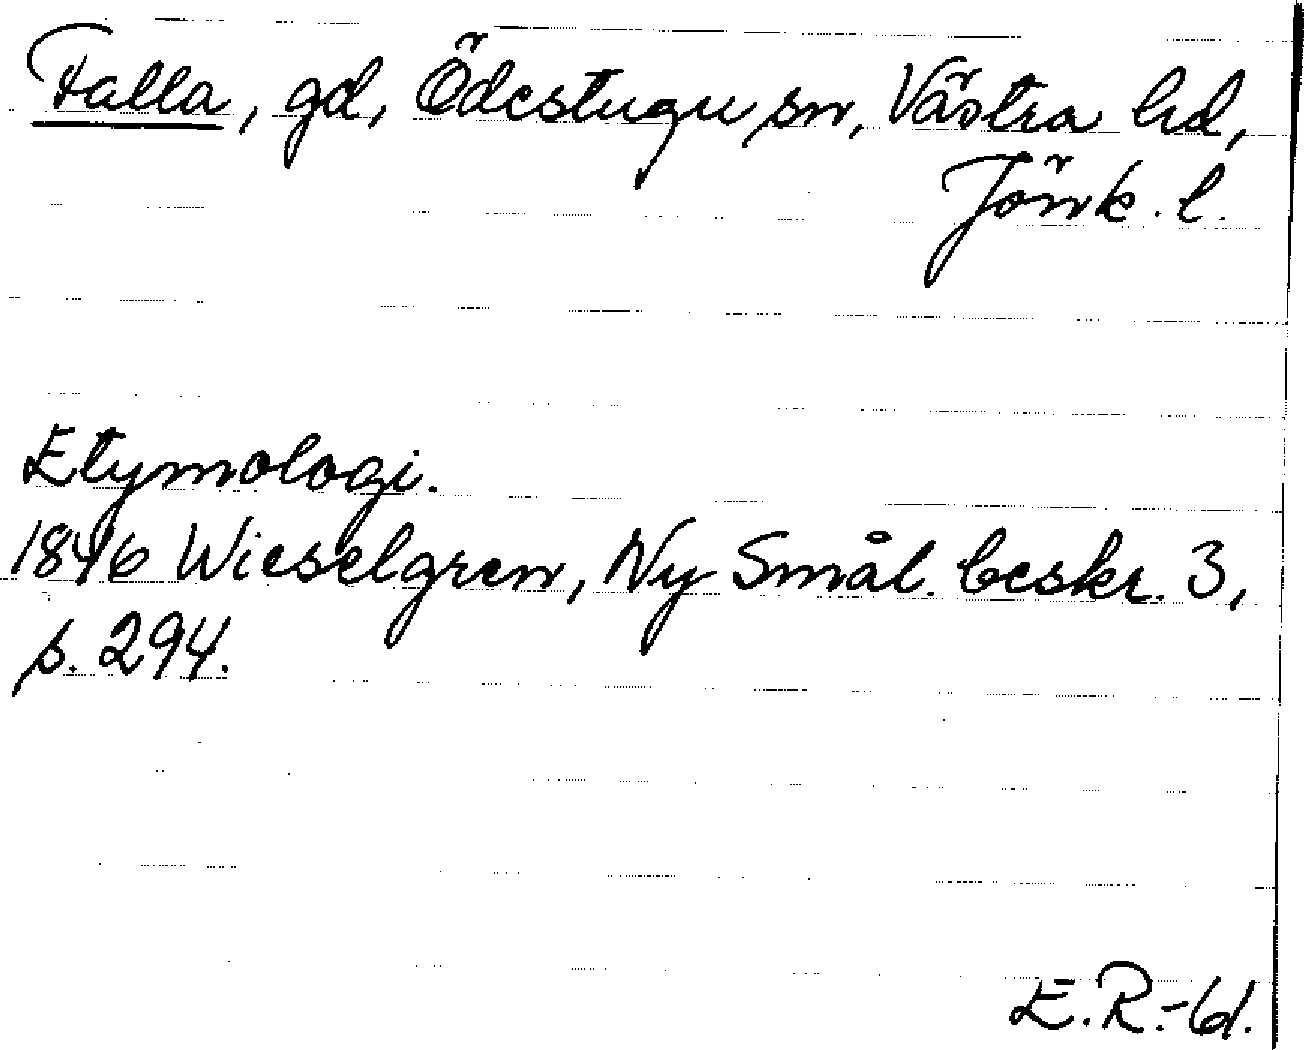 Falla, gd, Ödestugu sn, Västra hd,
Jönk. l.
Etymologi.
1846 Wieselgren, Ny Smål. beskr. 3,
s. 294.
E.R.-61.